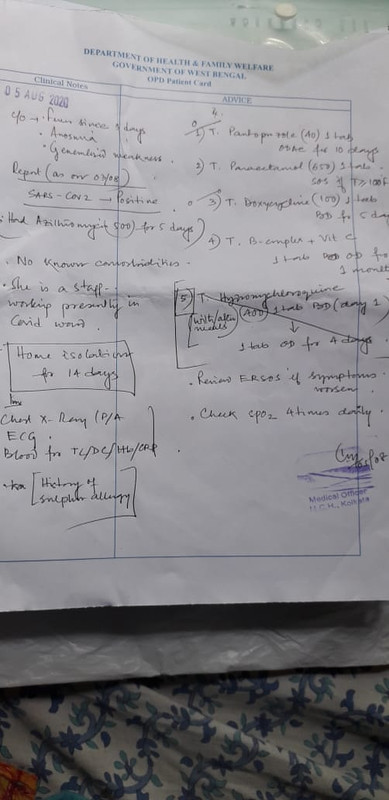 DEPARTMENT OF HEALTH & FAMILY WELFARE
GOVERNMENT OF WEST BENGAL
OPD Patient Card
Clinical Notes
05 AUG 2020
c/o → Fever since days
• Anosmia
• Generalised weakness.
Report (as on 03/08)
SARS-CoV2 → Positive
Had Azithromycin (500) for 5 days
• No known comorbidities.
• She is a staff
working presently in
Covid ward.
Home isolation
for 14 days
Chest X-Ray (P/A
ECG.
Blood for TC/DC/Hb/CRP
History of
sulphur allergy
ADVICE
1) T. Pantoprazole (40) 1 tab
ODAC for 10 days
2) T. Paracetamol (650) 1 tab
SOS if T≥100°F
3) T. Doxycycline (100) 1 tab
BD for 5 days
4) T. B-complex + Vit C
1 tab OD for
1 month
5) T. Hydroxychloroquine
(400) 1 tab BD (day 1)
[with/after meals]
↓
1 tab OD for 4 days.
• Review ERSOS if symptoms
worsen.
• Check SpO2 4 times daily.
Medical Officer
M.C.H., Kolkata